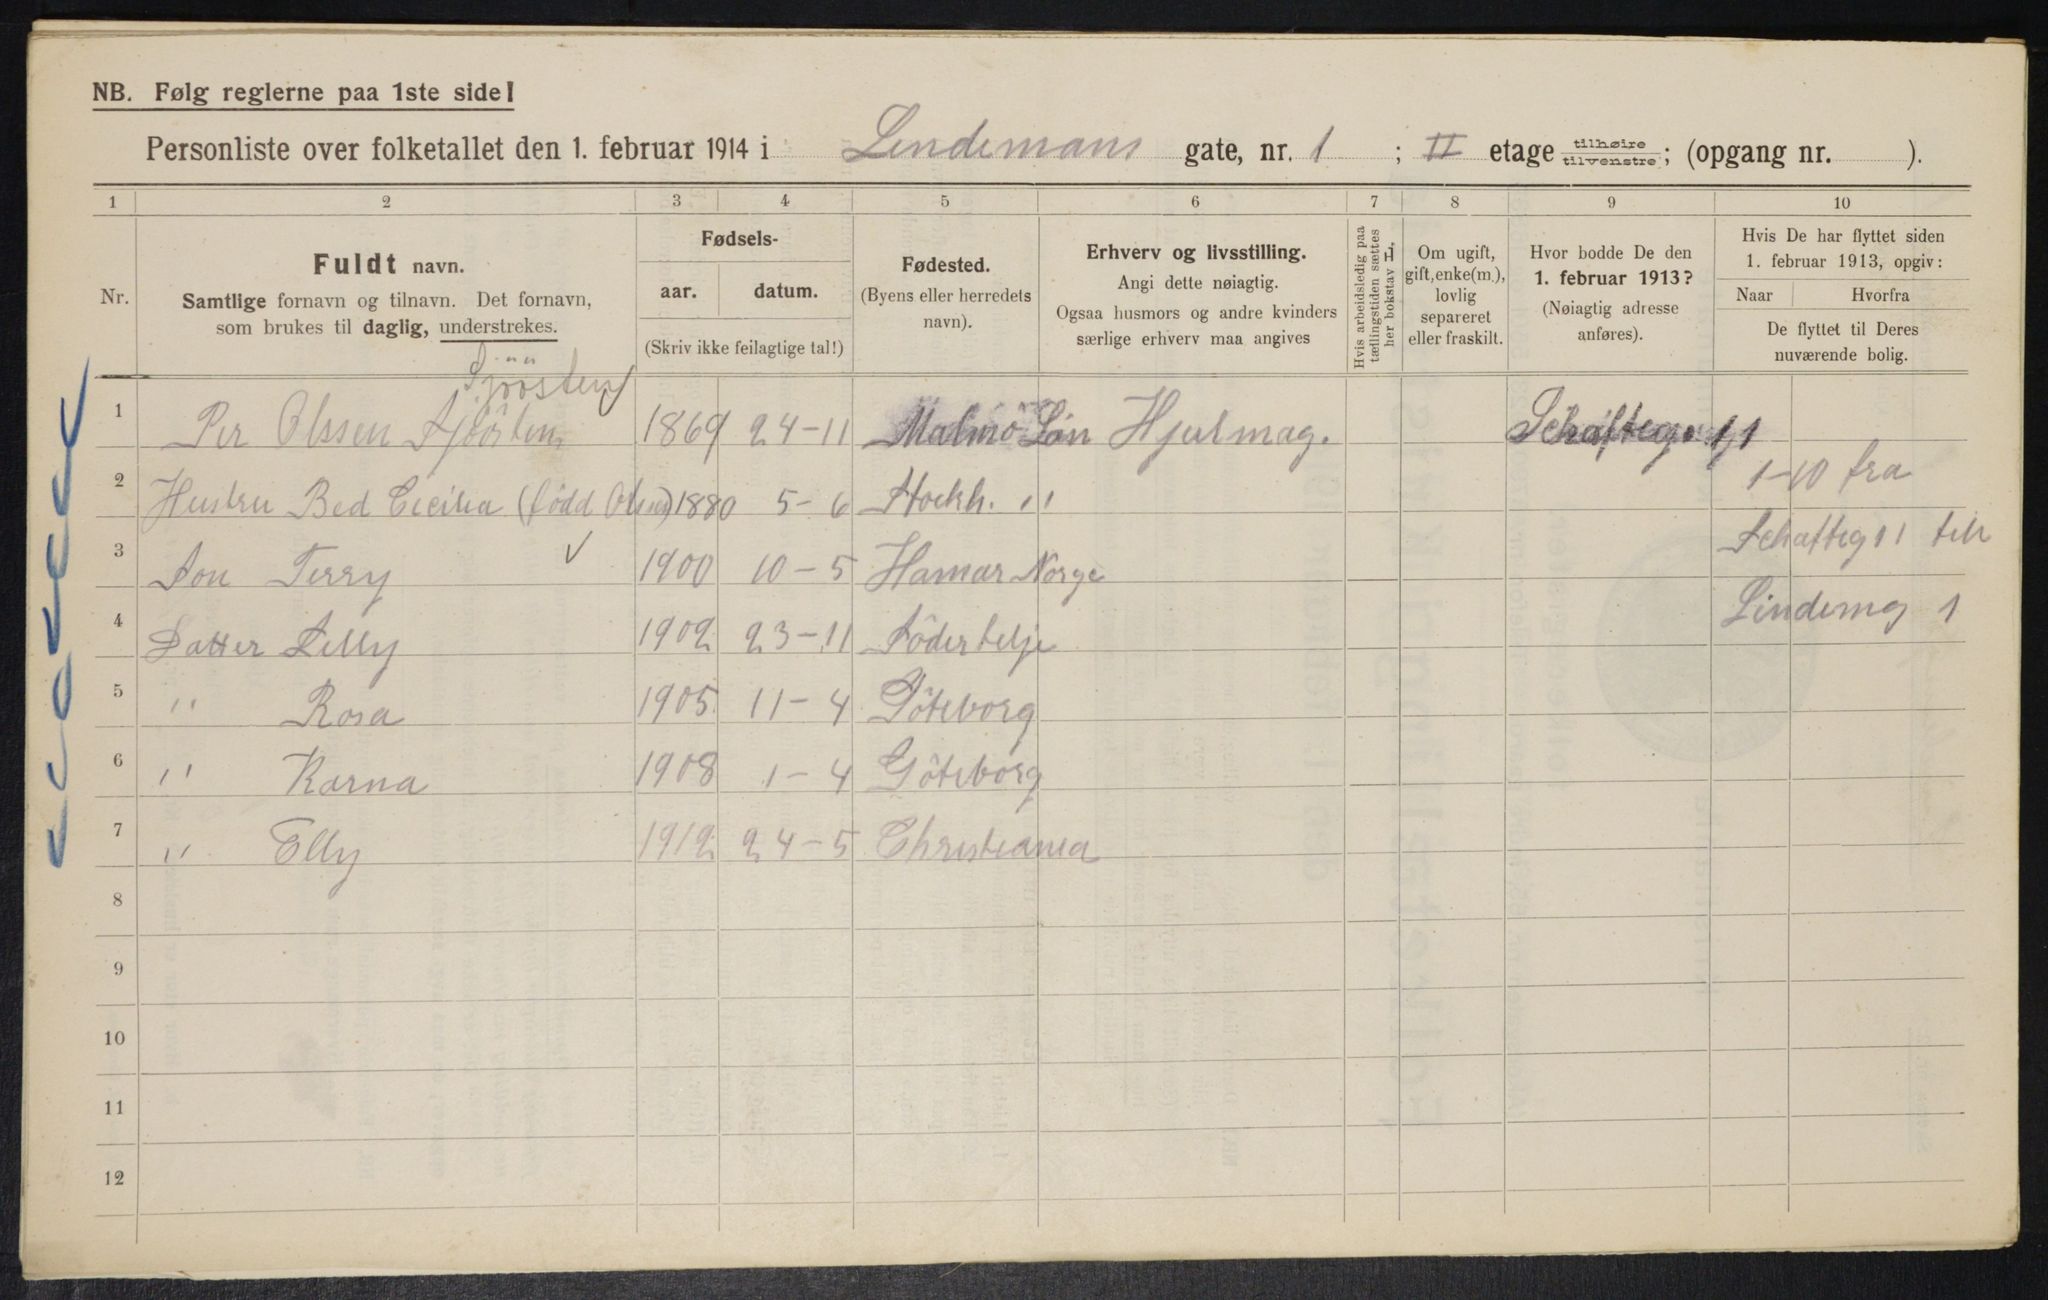 NB. Følg reglerne paa 1ste side!
Personliste over folketallet den 1. februar 1914 i Lindemans gate, nr. 1 ; II etage tilhøire tilvenstre ; (opgang nr. ).
1 2 3 4 5 6 7 8 9 10
Nr.
Fuldt navn.
Samtlige fornavn og tilnavn. Det fornavn,
som brukes til daglig, understrekes.
Fødsels-
aar. datum.
(Skriv ikke feilagtige tal!)
Fødested.
(Byens eller herredets
navn).
Erhverv og livsstilling.
Angi dette nøiagtig.
Ogsaa husmors og andre kvinders
særlige erhverv maa angives
Hvis arbeidsledig paa
tællingstiden sættes
her bokstav L.
Om ugift,
gift, enke(m.),
lovlig
separeret
eller fraskilt.
Hvor bodde De den
1. februar 1913?
(Nøiagtig adresse
anføres).
Hvis De har flyttet siden
1. februar 1913, opgiv:
Naar Hvorfra
De flyttet til Deres
nuværende bolig.
Sjöösten
1 Per Olssen Sjöösten 1869 24-11 Malmö Län Hjulmag. Schafteg. 11
2 Hustru Bed Cecilia (född Olsen) 1880 5-6 Stockh. " 1-10 fra
3 Son Terry 1900 10-5 Hamar Norge Schafteg 11 till
4 Datter Lilly 1902 23-11 Södertelje Lindemg 1
5 " Rosa 1905 11-4 Göteborg
6 " Karna 1908 1-4 Göteborg
7 " Elly 1912 24-5 Christiania
8
9
10
11
12